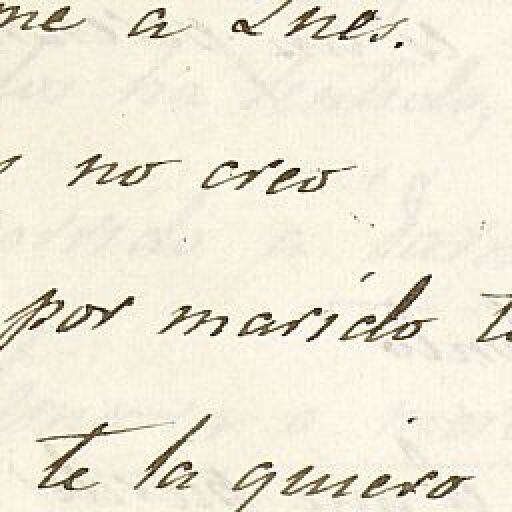 me a Ines.
no creo
por marido
te la quiero